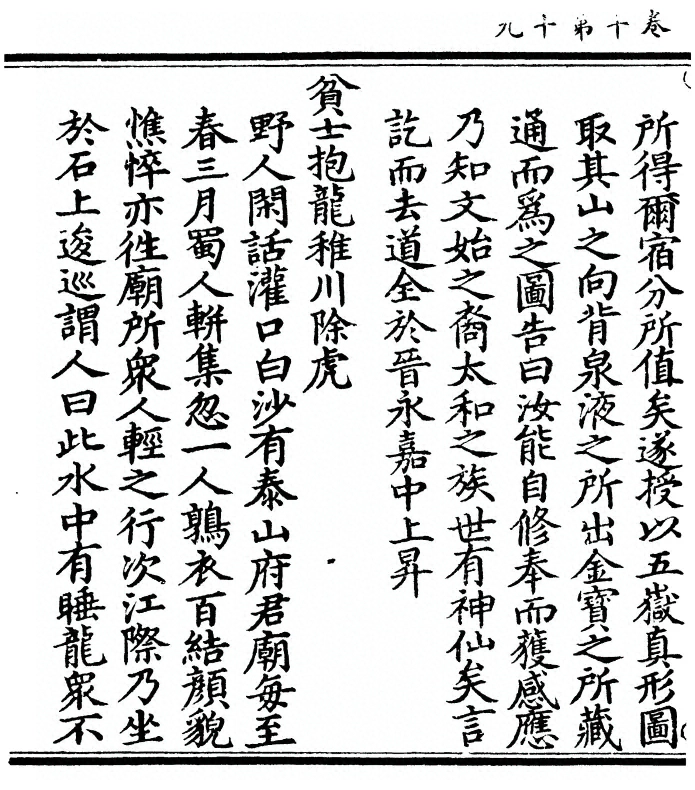 卷十第十九
所得爾宿分所值矣遂授以五嶽真形圖
取其山之向背泉液之所出金寶之所藏
通而爲之圖告曰汝能自修奉而獲感應
乃知文始之裔太和之族世有神仙矣言
訖而去道全於晉永嘉中上昇
貧士抱龍稚川除虎
野人閑話灌口白沙有泰山府君廟每至
春三月蜀人輧集忽一人鶉衣百結顔貌
憔悴亦徃廟所衆人輕之行次江際乃坐
於石上逡巡謂人曰此水中有睡龍衆不